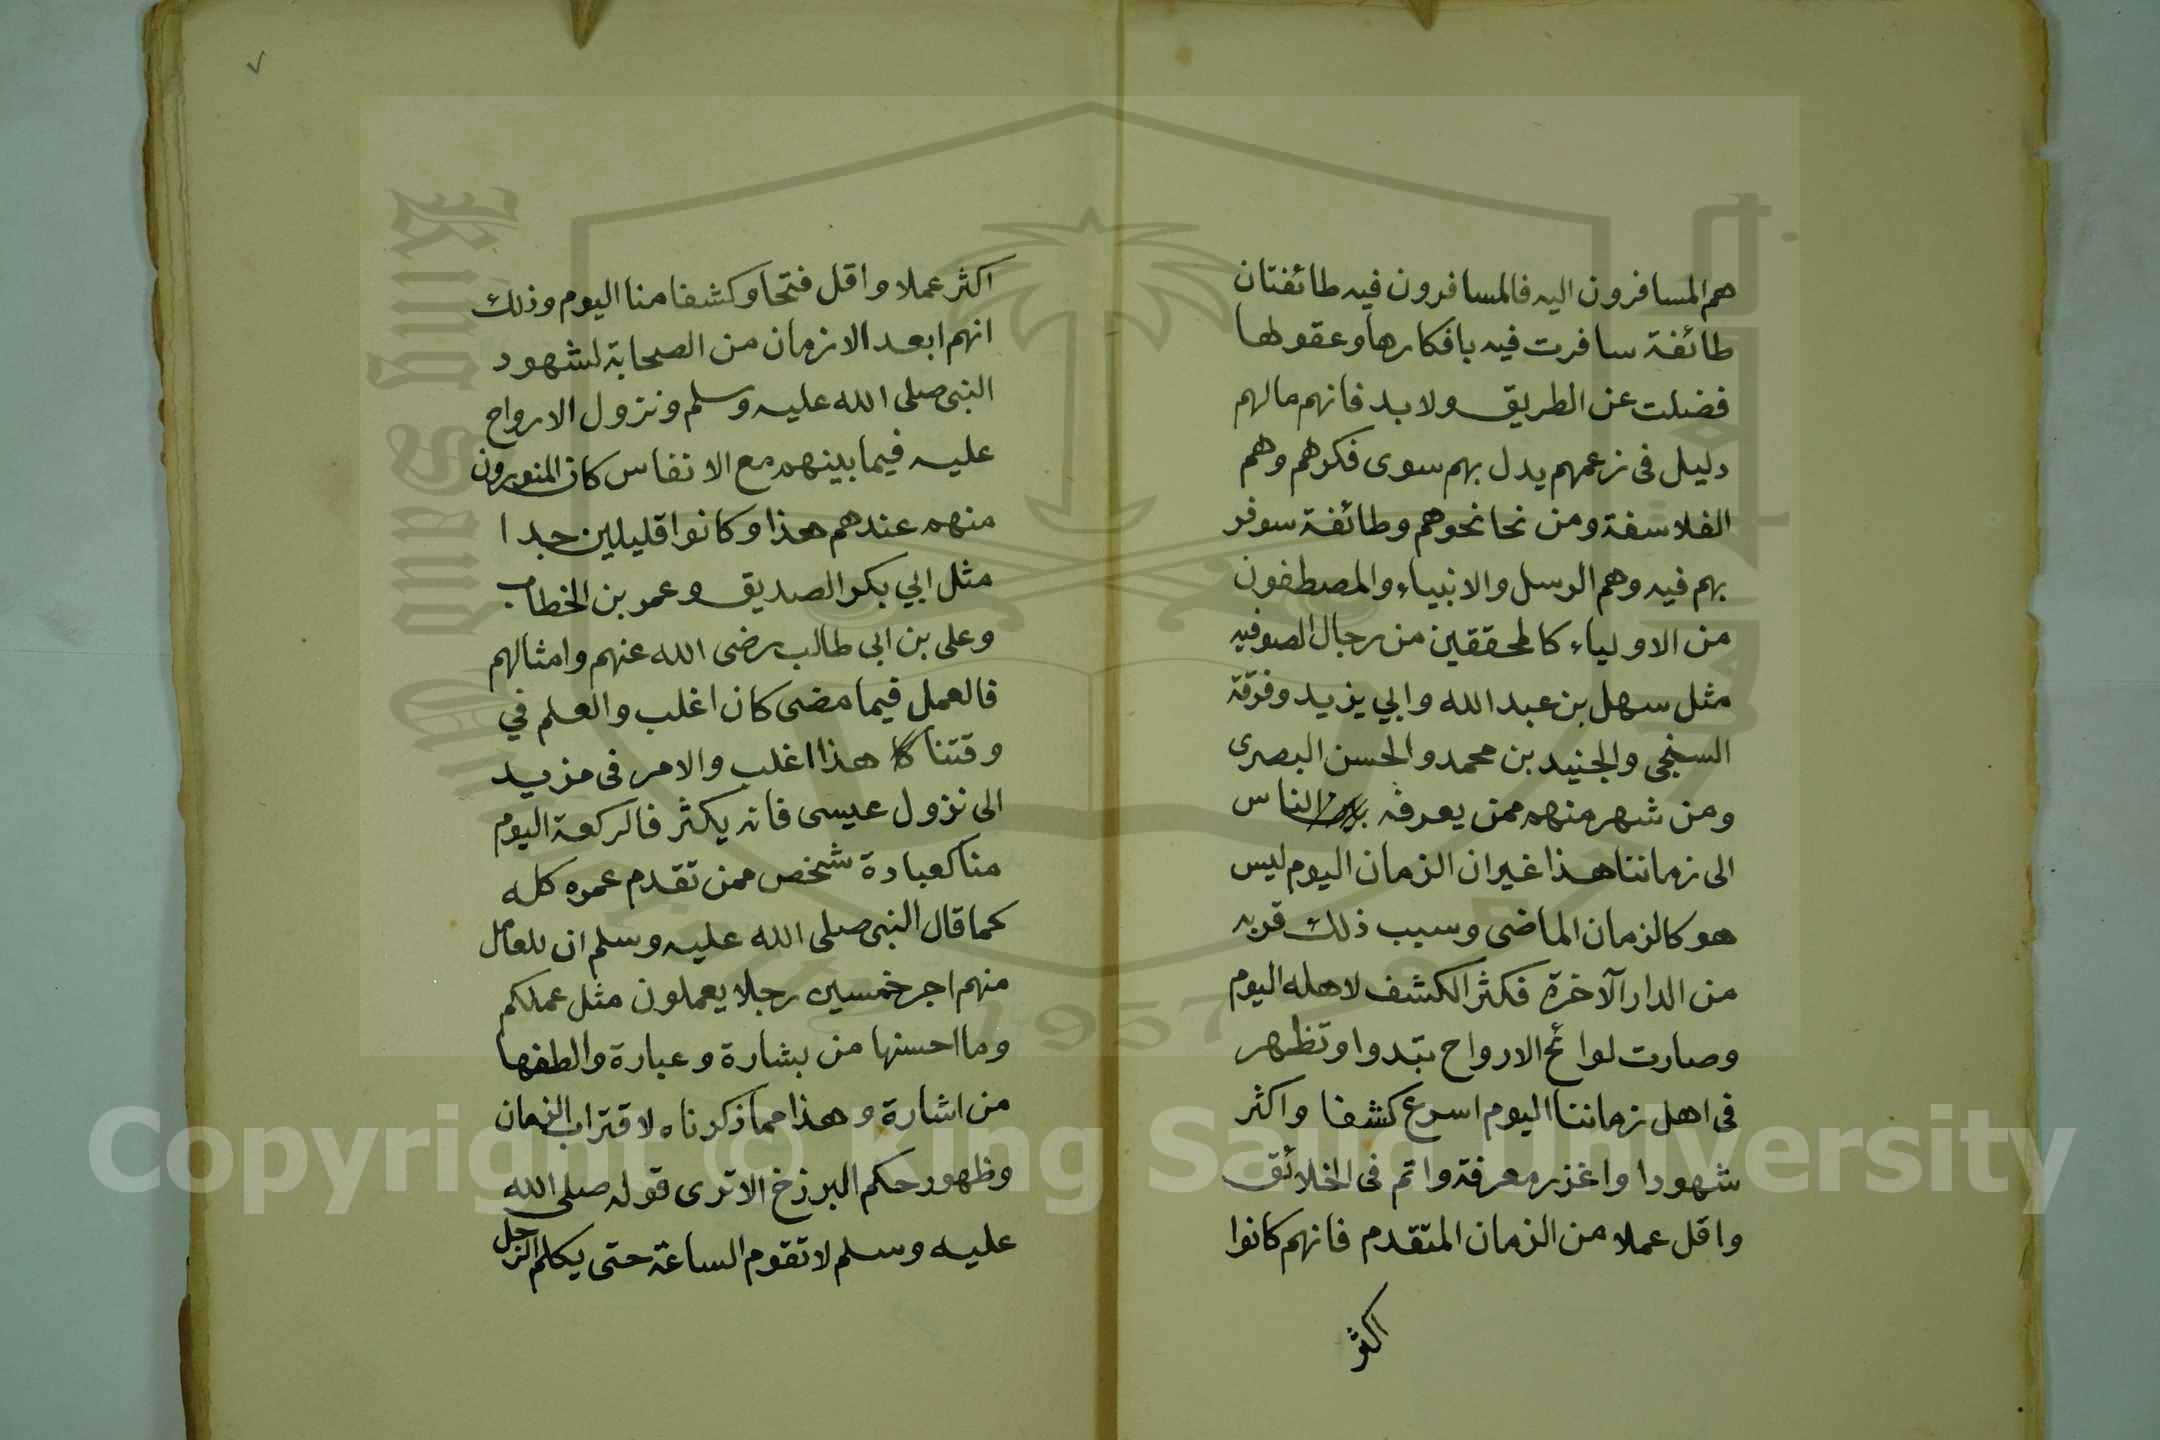 هم المسافرون اليه فالمسافرون فيه طائفتان
طائفة سافرت فيه بافكارها وعقولها
فضلت عن الطريق ولا بد فانهم مالهم
دليل فى زعمهم يدل بهم سوى فكرهم وهم
الفلاسفة ومن نحا نحوهم وطائفة سوفر
بهم فيه وهم الرسل والانبياء والمصطفون
من الاولياء كالمحققين من رجال الصوفيه
مثل سهل بن عبد الله وابي يزيد وفرقة
السنجى والجنيد بن محمد والحسن البصرى
ومن شهر منهم ممن يعرفه الناس
الى زماننا هذا غير ان الزمان اليوم ليس
هو كالزمان الماضى وسبب ذلك قربه
من الدار الآخرة فكثر الكشف لاهله اليوم
وصارت لوائح الارواح تبدوا وتظهر
فى اهل زماننا اليوم اسرع كشفا واكثر
شهودا واغزر معرفة واتم فى الخلائق
واقل عملا من الزمان المتقدم فانهم كانوا
اكثر
٧
اكثر عملا واقل فتحا وكشفا منا اليوم وذلك
انهم ابعد الازمان من الصحابة لشهود
النبى صلى الله عليه وسلم ونزول الارواح
عليه فيما بينهم مع الانفاس كان المنورون
منهم عندهم هذا وكانوا قليلين جدا
مثل ابي بكر الصديق وعمر بن الخطاب
وعلى بن ابى طالب رضى الله عنهم وامثالهم
فالعمل فيما مضى كان اغلب والعلم في
وقتنا هذا اغلب والامر فى مزيد
الى نزول عيسى فانه يكثر فالركعة اليوم
منا كعبادة شخص ممن تقدم عمره كله
كما قال النبى صلى الله عليه وسلم ان للعامل
منهم اجر خمسين رجلا يعملون مثل عملكم
وما احسنها من بشارة وعبارة والطفها
من اشارة وهذا مما ذكرناه لاقتراب الزمان
وظهور حكم البرزخ الا ترى قوله صلى الله
عليه وسلم لا تقوم الساعة حتى يكلم الرجل
King Saud University
1957
Copyright © King Saud University